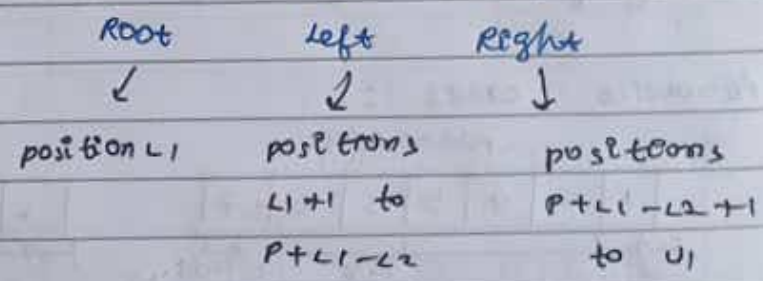 Root Left Right
position L1 positions positions
L1+1 to P+L1-L2+1
P+L1-L2 to U1